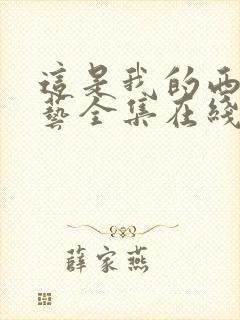 這是我的西
藝全集在綫
薛家燕